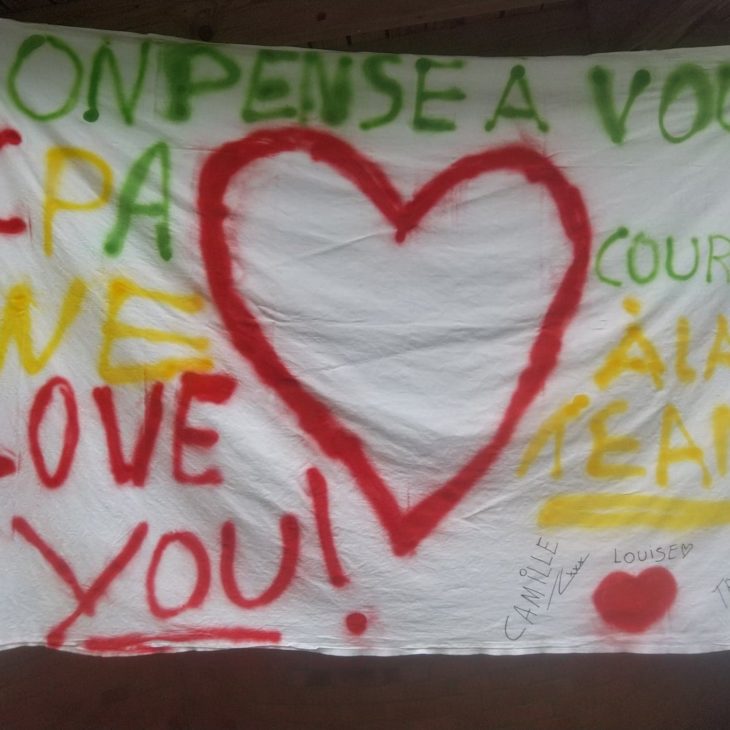 ON PENSE A VOU
CPA
WE
LOVE
YOU!
COUR
À LA
TEAM
CAMILLE
xxx
LOUISE♡